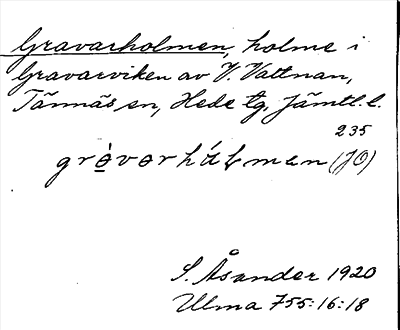 Gravarholmen, holme i
Gravarviken av V. Vattnan,
Tännäs sn, Hede tg, Jämtl. l.
235
grò̱vərhálmen (JO)
S. Åsander 1920
Ulma 755:16:18